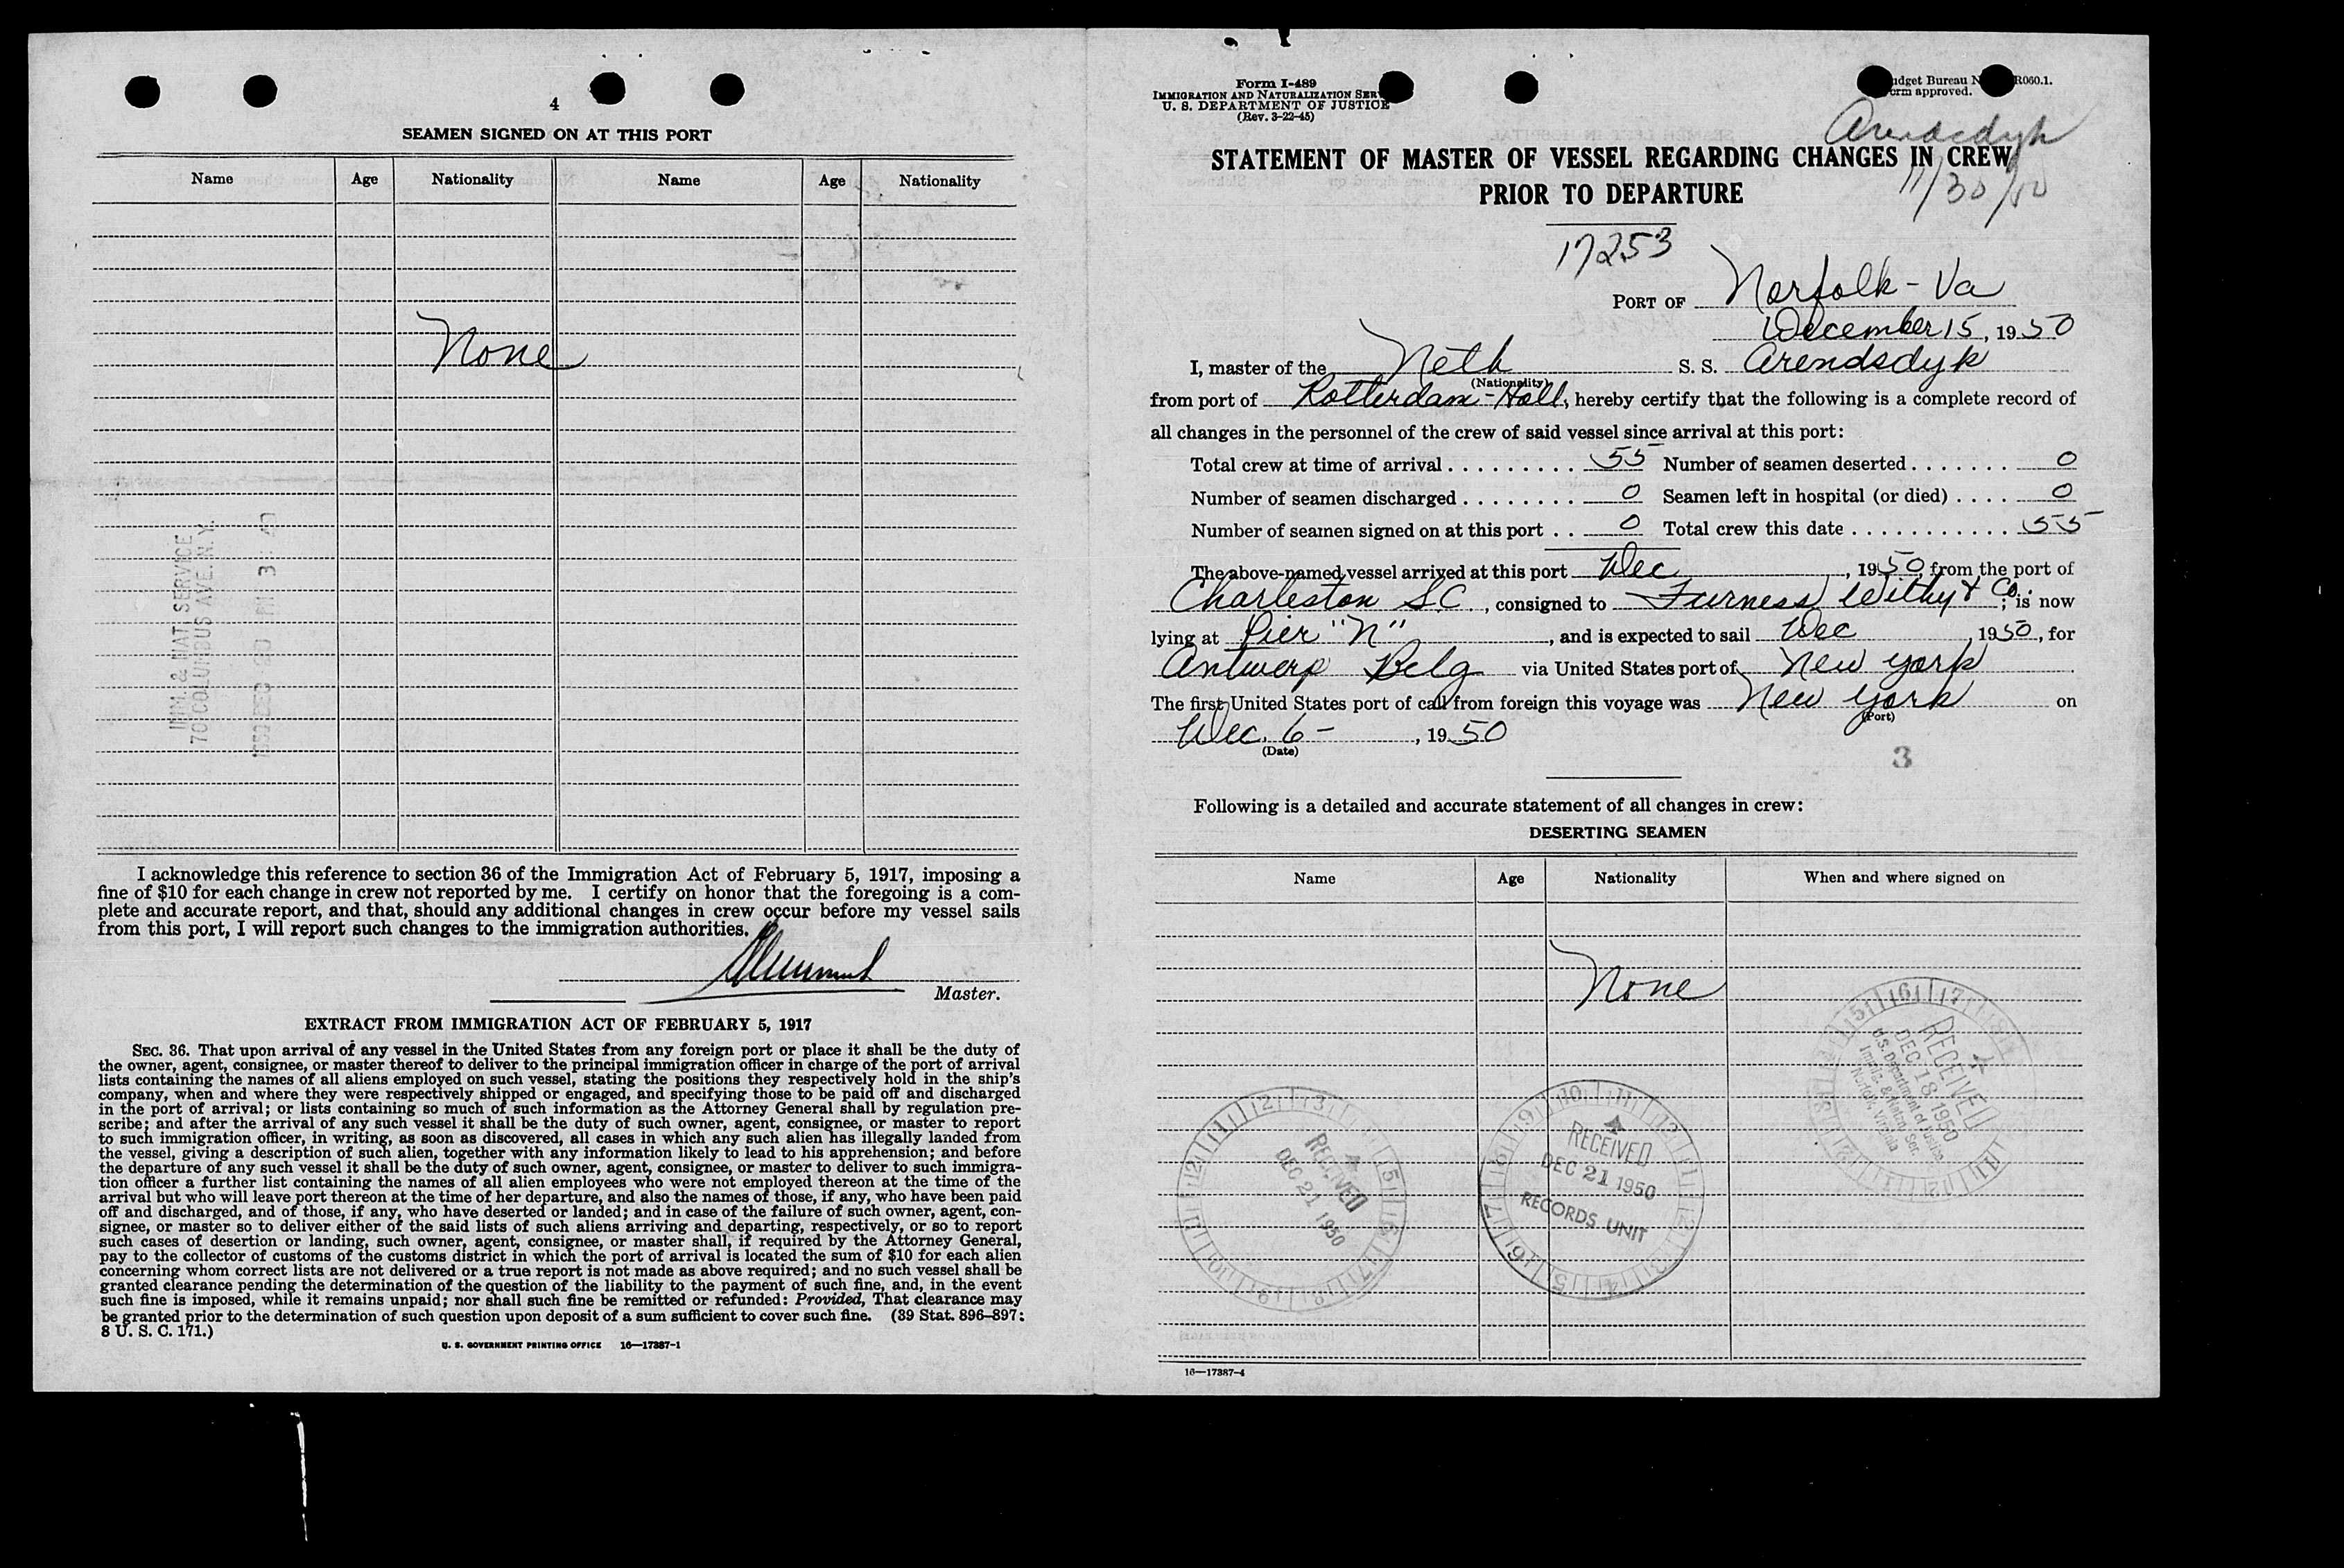 4
SEAMEN SIGNED ON AT THIS PORT
Name Age Nationality Name Age Nationality
None
IMM. & NAT. SERVICE
70 COLUMBUS AVE. N.Y.
I acknowledge this reference to section 36 of the Immigration Act of February 5, 1917, imposing a
fine of $10 for each change in crew not reported by me. I certify on honor that the foregoing is a com-
plete and accurate report, and that, should any additional changes in crew occur before my vessel sails
from this port, I will report such changes to the immigration authorities.
Master.
EXTRACT FROM IMMIGRATION ACT OF FEBRUARY 5, 1917
SEC. 36. That upon arrival of any vessel in the United States from any foreign port or place it shall be the duty of
the owner, agent, consignee, or master thereof to deliver to the principal immigration officer in charge of the port of arrival
lists containing the names of all aliens employed on such vessel, stating the positions they respectively hold in the ship's
company, when and where they were respectively shipped or engaged, and specifying those to be paid off and discharged
in the port of arrival; or lists containing so much of such information as the Attorney General shall by regulation pre-
scribe; and after the arrival of any such vessel it shall be the duty of such owner, agent, consignee, or master to report
to such immigration officer, in writing, as soon as discovered, all cases in which any such alien has illegally landed from
the vessel, giving a description of such alien, together with any information likely to lead to his apprehension; and before
the departure of any such vessel it shall be the duty of such owner, agent, consignee, or master to deliver to such immigra-
tion officer a further list containing the names of all alien employees who were not employed thereon at the time of the
arrival but who will leave port thereon at the time of her departure, and also the names of those, if any, who have been paid
off and discharged, and of those, if any, who have deserted or landed; and in case of the failure of such owner, agent, con-
signee, or master so to deliver either of the said lists of such aliens arriving and departing, respectively, or so to report
such cases of desertion or landing, such owner, agent, consignee, or master shall, if required by the Attorney General,
pay to the collector of customs of the customs district in which the port of arrival is located the sum of $10 for each alien
concerning whom correct lists are not delivered or a true report is not made as above required; and no such vessel shall be
granted clearance pending the determination of the question of the liability to the payment of such fine, and, in the event
such fine is imposed, while it remains unpaid; nor shall such fine be remitted or refunded: Provided, That clearance may
be granted prior to the determination of such question upon deposit of a sum sufficient to cover such fine. (39 Stat. 896–897;
8 U. S. C. 171.)
U. S. GOVERNMENT PRINTING OFFICE 16—17387-1
Form I-489
IMMIGRATION AND NATURALIZATION SER
U. S. DEPARTMENT OF JUSTICE
(Rev. 3-22-45)
udget Bureau N R060.1.
orm approved.
Arendsdyk
11/30/50
STATEMENT OF MASTER OF VESSEL REGARDING CHANGES IN CREW
PRIOR TO DEPARTURE
17253
PORT OF Norfolk - Va
December 15, 1950
I, master of the Neth S. S. Arendsdyk
(Nationality)
from port of Rotterdam - Holl, hereby certify that the following is a complete record of
all changes in the personnel of the crew of said vessel since arrival at this port:
Total crew at time of arrival . . . . . . . . . 55 Number of seamen deserted . . . . . . . 0
Number of seamen discharged . . . . . . . . 0 Seamen left in hospital (or died) . . . . 0
Number of seamen signed on at this port . . 0 Total crew this date . . . . . . . . . . . 55
The above-named vessel arrived at this port Dec , 1950, from the port of
Charleston S.C. , consigned to Furness Withy & Co.; is now
lying at Pier "N" , and is expected to sail Dec , 1950, for
Antwerp Belg via United States port of New York
The first United States port of call from foreign this voyage was New York on
(Port)
Dec. 6 - , 1950
(Date)
3
Following is a detailed and accurate statement of all changes in crew:
DESERTING SEAMEN
Name Age Nationality When and where signed on
None
RECEIVED
DEC 18 1950
U.S. Department of Justice
Immig. & Natzn. Ser.
Norfolk, Virginia
RECEIVED
DEC 21 1950
RECEIVED
DEC 21 1950
RECORDS UNIT
16—17387-4